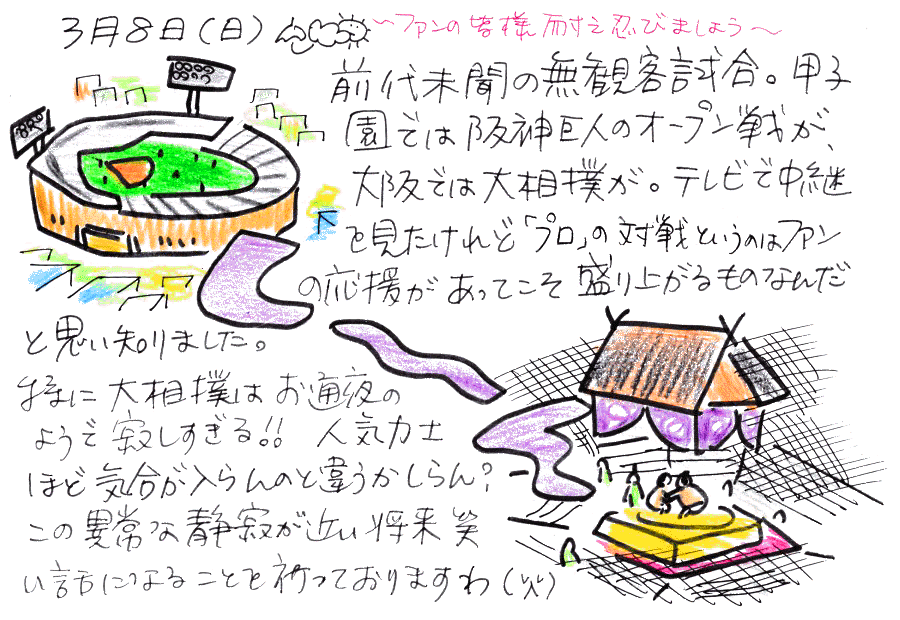 3月8日(日)
~ファンの皆様耐え忍びましょう~
前代未聞の無観客試合。甲子
園では阪神巨人のオープン戦が、
大阪では大相撲が。テレビで中継
を見たけれど「プロ」の対戦というのはファン
の応援があってこそ盛り上がるものなんだ
と思い知りました。
特に大相撲はお通夜の
ようで寂しすぎる!! 人気力士
ほど気合が入らんのと違うかしらん?
この異常な静寂が近い将来笑
い話になることを祈っておりますわ(火)